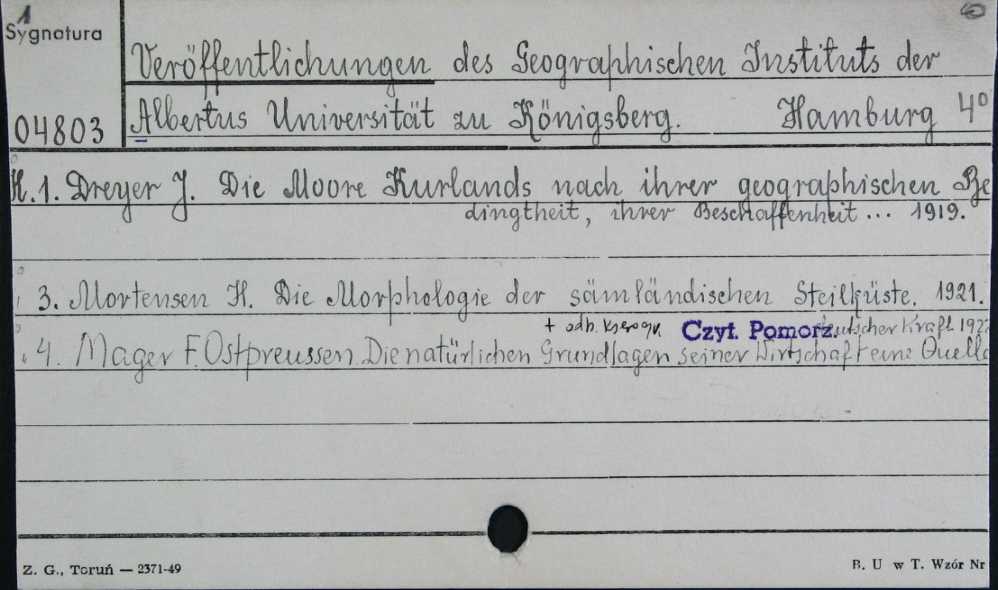 1
Sygnatura
04803
Veröffentlichungen des Geographischen Instituts der
Albertus Universität zu Königsberg. Hamburg 4º
H.1. Dreyer J. Die Moore Kurlands nach ihrer geographischen Be
dingtheit, ihrer Beschaffenheit ... 1919.
3. Mortensen H. Die Morphologie der sämländischen Steilküste. 1921.
+ odb. kserogr. Czyt. Pomorz. deutscher Kraft 1922
4. Mager F. Ostpreussen. Die natürlichen Grundlagen seiner Wirtschaft eine Quelle
Z. G., Toruń — 2371-49
B. U w T. Wzór Nr